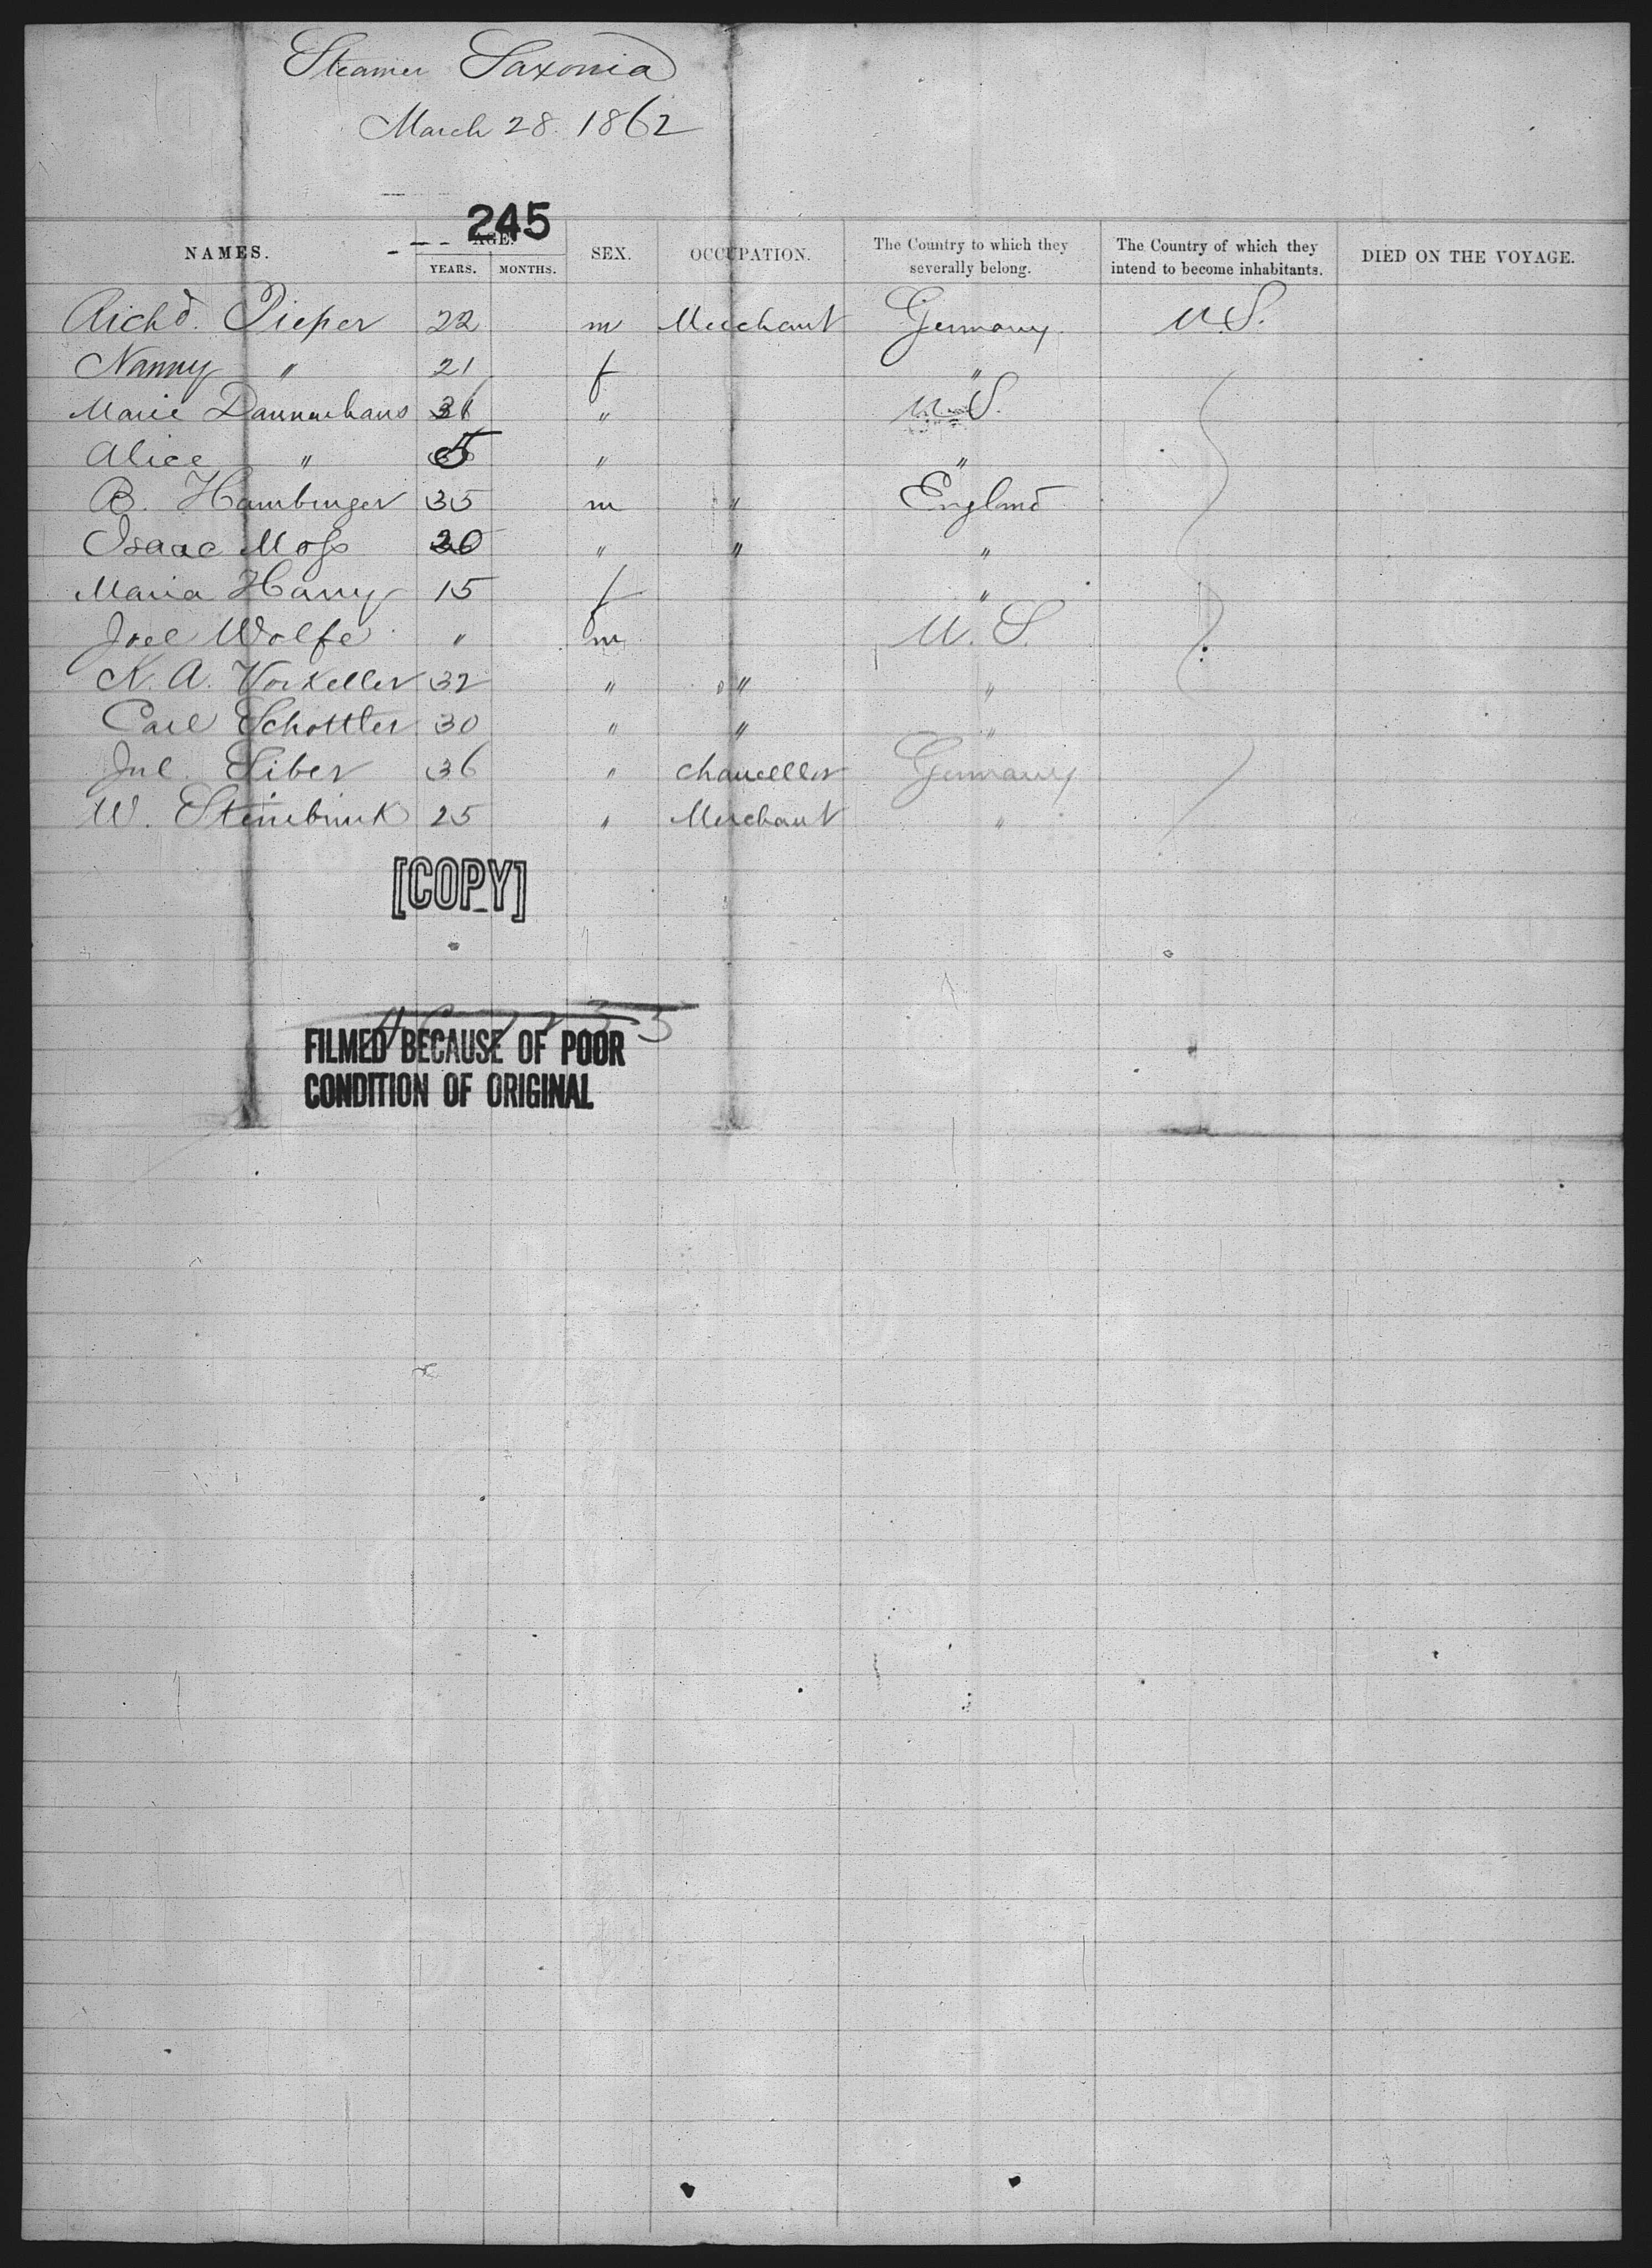 Steamer Saxonia
March 28. 1862
245
NAMES. AGE. SEX. OCCUPATION. The Country to which they severally belong. The Country of which they intend to become inhabitants. DIED ON THE VOYAGE.
YEARS. MONTHS.
Richd. Pieper 22 m Merchant Germany. U.S.
Nanny " 21 f "
Marie Dannenhaus " U.S.
Alice " 5 " "
B. Hamburger 35 m " England
Isaac Moss 20 " " "
Maria Harry 15 f "
Joel Wolfe " m U. S.
K. A. Vorkeller 32 " " "
Carl Schottler 30 " " "
Jul. Siber 36 " Chancellor Germany
W. Steinbrink 25 " Merchant "
[COPY]
FILMED BECAUSE OF POOR
CONDITION OF ORIGINAL